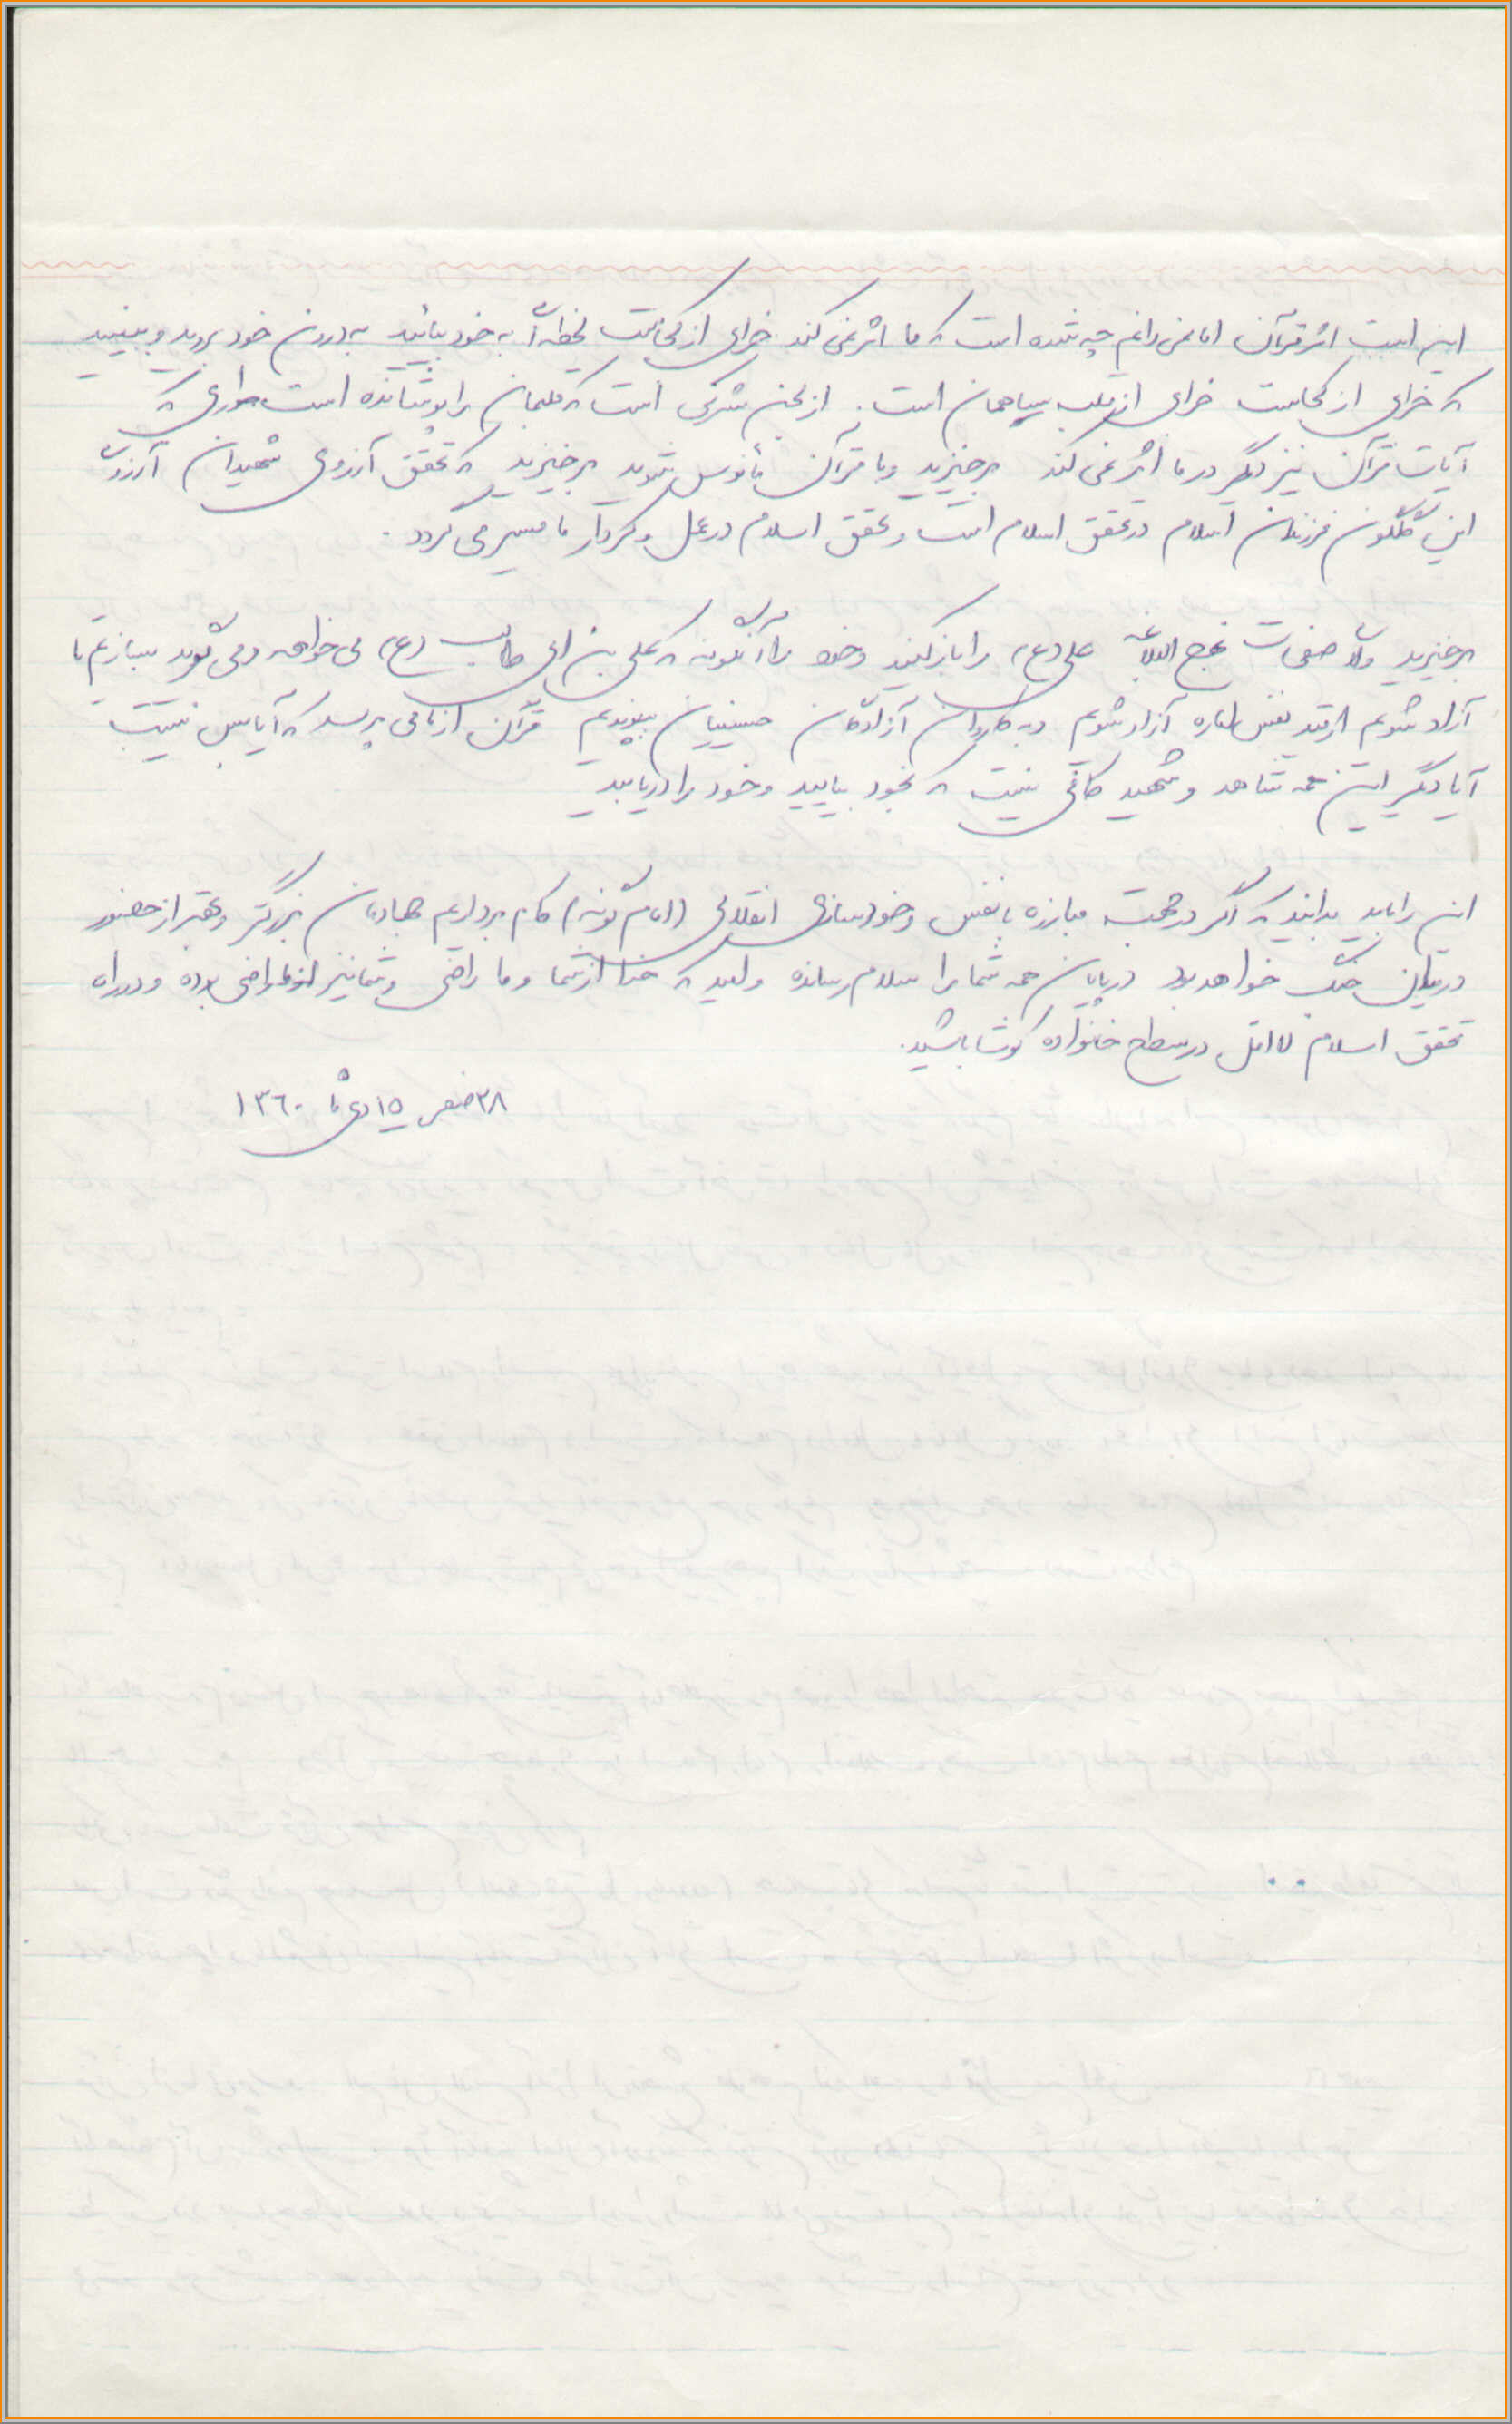 این است اثر قرآن اما نمی‌دانم چه شده است که ما اثر نمی‌کند خرابی از کجاست لحظه‌ای به خود بیائید به درون خود بروید و ببینید
که خرابی از کجاست خرابی از قلب سیاهمان است. از لجن شرکی است که قلبمان را پوشانده است بطوری که
آیات قرآن نیز دیگر در ما اثر نمی کند برخیزید و با قرآن مأنوس شوید برخیزید که تحقق آرزوی شهیدان آرزوی
این گلگون فرزندان اسلام در تحقق اسلام است و تحقق اسلام در عمل و کردار ما میسر می گردد.
برخیزید و صفحات نهج البلاغه علی (ع) را باز کنید و خود را آنگونه که علی بن ابی طالب (ع) می خواهد و می گوید بسازیم تا
آزاد شویم از قید نفس اماره آزاد شویم و به کاروان آزادگان حسینیان بپیوندیم قرآن از ما می پرسد که آیا بس نیست
آیا دیگر این همه شاهد و شهید کافی نیست که بخود بیایید و خود را دریابید
این را باید بدانید که اگر در جهت مبارزه با نفس و خودسازی انقلابی (امام گونه) گام برداریم جهادمان بزرگتر و بهتر از حضور
در میدان جنگ خواهد بود در پایان همه شما را سلام رسانده و امید که خدا از شما و ما راضی و شما نیز از ما راضی بوده و در راه
تحقق اسلام لااقل در سطح خانواده کوشا باشید.
۲۸ صفر ۱۵ دی ماه ۱۳۶۰